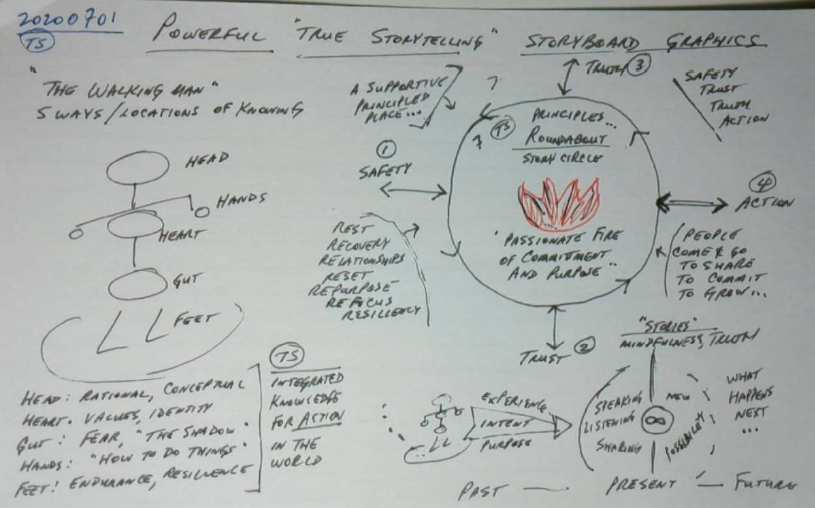 20200701
TS
POWERFUL "TRUE STORYTELLING" STORYBOARD GRAPHICS
"THE WALKING MAN"
5 WAYS/LOCATIONS OF KNOWING
HEAD
HANDS
HEART
GUT
FEET
HEAD: RATIONAL, CONCEPTUAL
HEART. VALUES, IDENTITY
GUT: FEAR, "THE SHADOW"
HANDS: "HOW TO DO THINGS"
FEET: ENDURANCE, RESILIENCE
TS
INTEGRATED
KNOWLEDGE
FOR ACTION
IN THE
WORLD
A SUPPORTIVE
PRINCIPLED
PLACE...
1
SAFETY
REST
RECOVERY
RELATIONSHIPS
RESET
REPURPOSE
REFOCUS
RESILIENCY
TRUTH 3
TS
PRINCIPLES...
ROUNDABOUT
STORY CIRCLE
"PASSIONATE FIRE
OF COMMITMENT
AND PURPOSE"..
TRUST 2
SAFETY
TRUST
TRUTH
ACTION
4
ACTION
PEOPLE
COME & GO
TO SHARE
TO COMMIT
TO GROW...
"STORIES"
MINDFULNESS, TRUTH
EXPERIENCE
INTENT
PURPOSE
SPEAKING
LISTENING
SHARING
∞
NEW
POSSIBILITY
WHAT
HAPPENS
NEXT
...
PAST — PRESENT — FUTURE